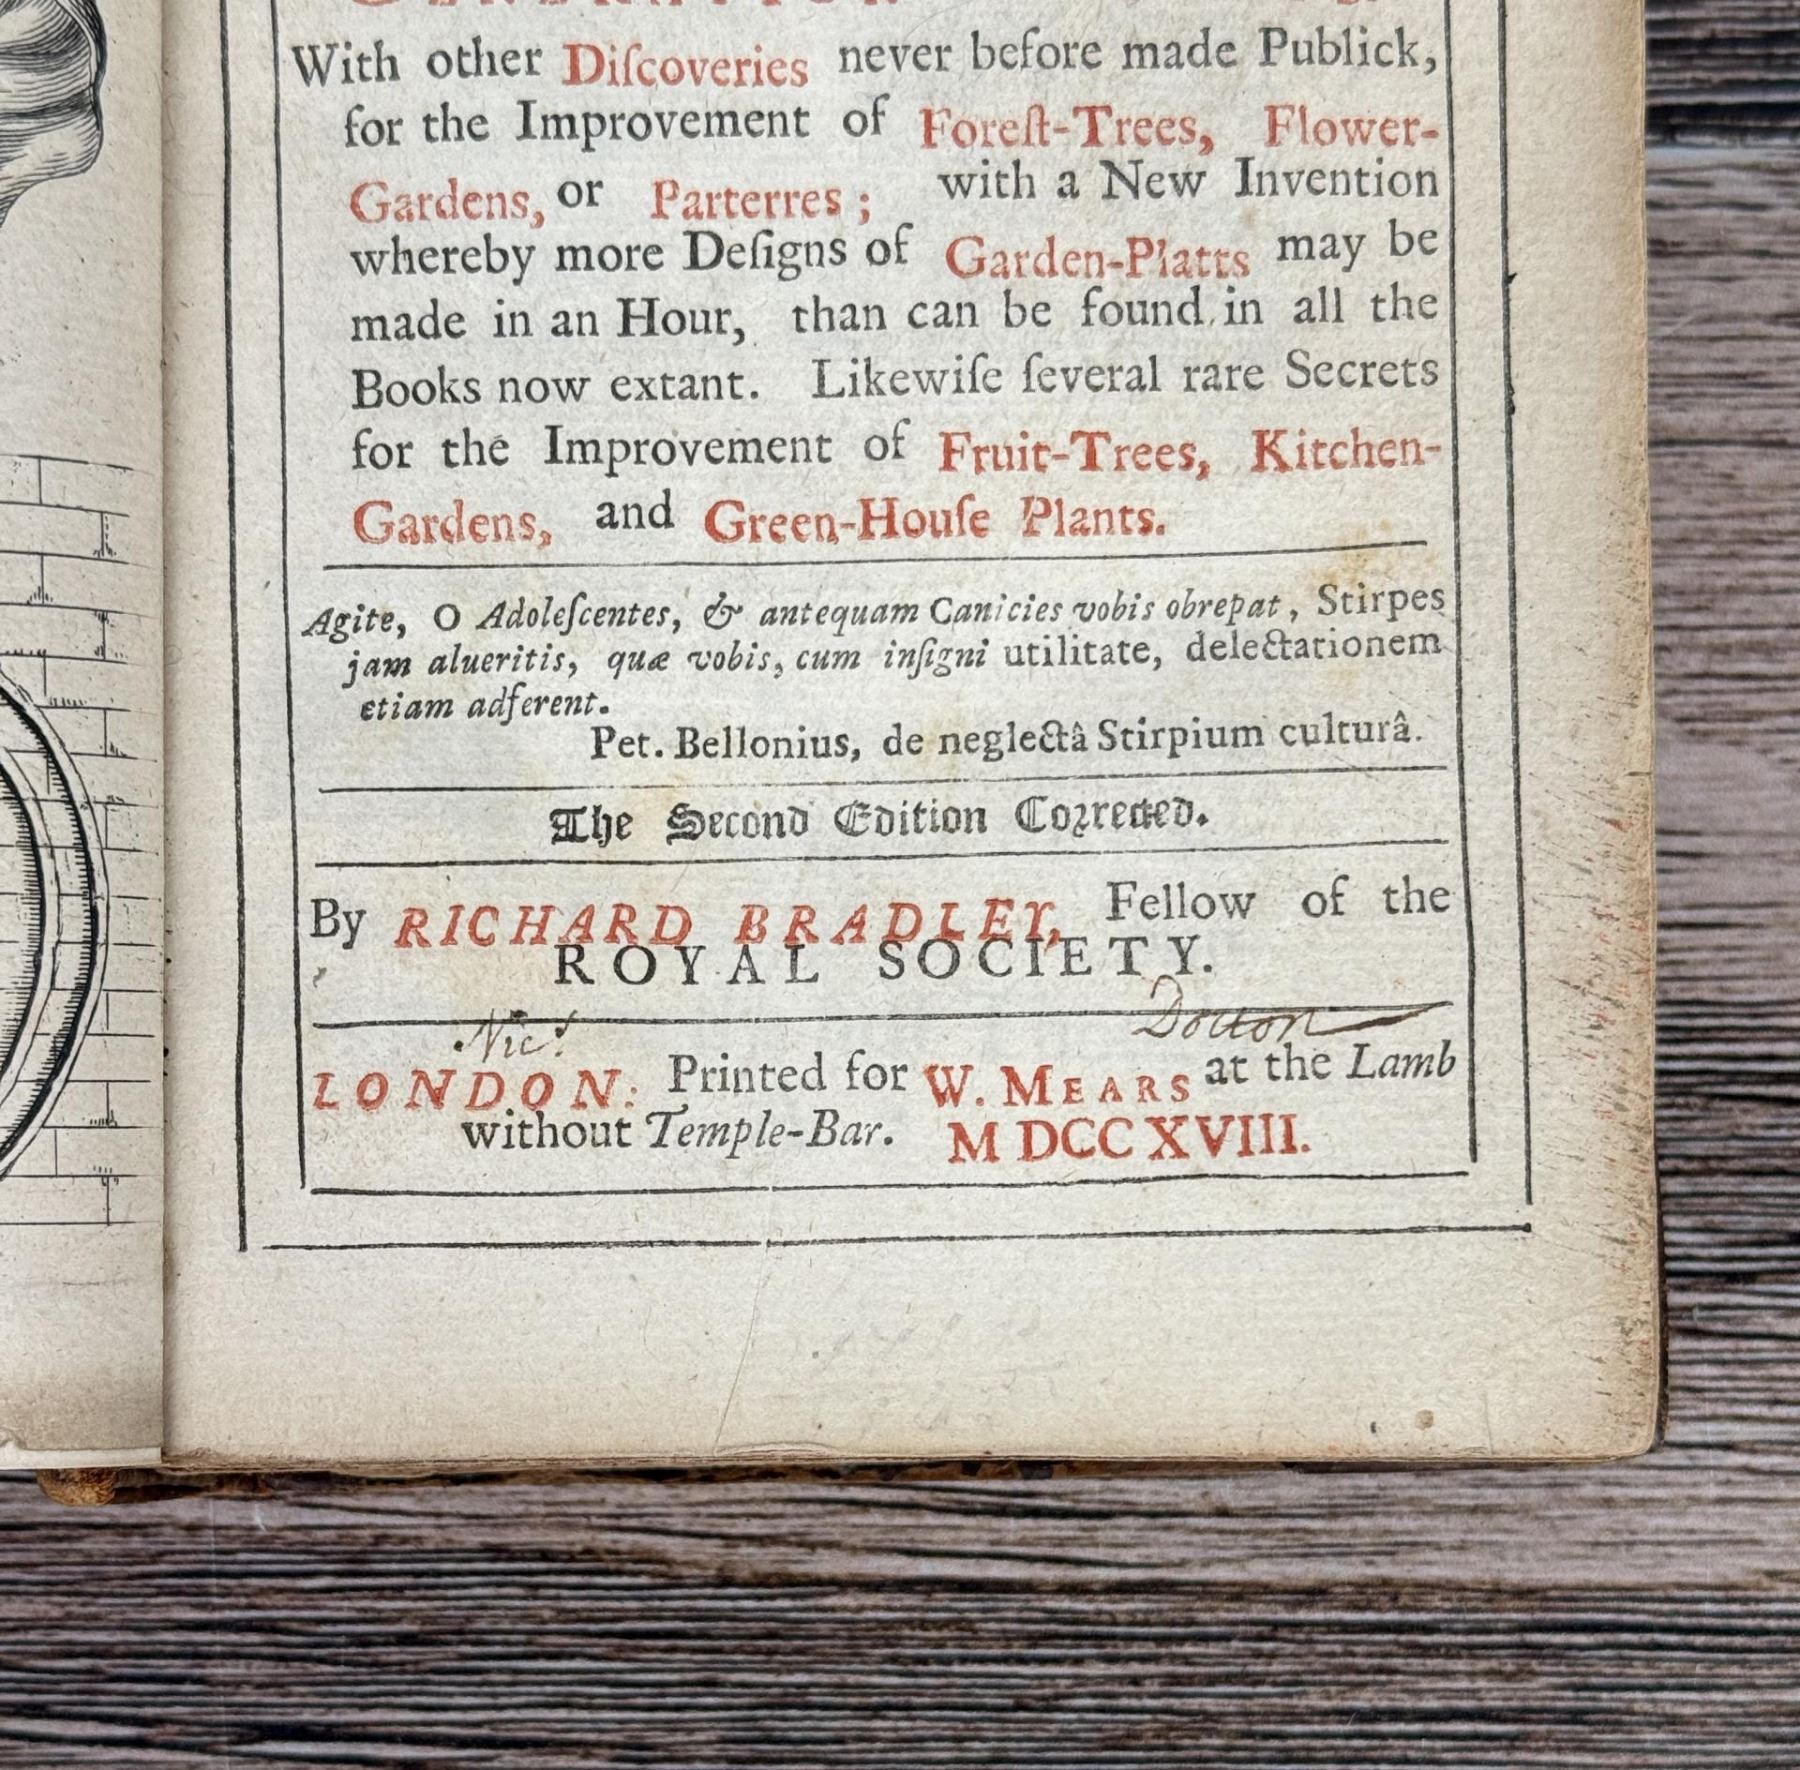 With other Diſcoveries never before made Publick,
for the Improvement of Foreſt-Trees, Flower-
Gardens, or Parterres; with a New Invention
whereby more Deſigns of Garden-Platts may be
made in an Hour, than can be found in all the
Books now extant. Likewiſe ſeveral rare Secrets
for the Improvement of Fruit-Trees, Kitchen-
Gardens, and Green-Houſe Plants.
Agite, O Adoleſcentes, & antequam Canicies vobis obrepat, Stirpes
jam alueritis, quæ vobis, cum inſigni utilitate, delectationem
etiam adferent.
Pet. Bellonius, de neglectâ Stirpium culturâ.
The Second Edition Corrected.
By RICHARD BRADLEY, Fellow of the
ROYAL SOCIETY.
Nics Docton
LONDON: Printed for W. MEARS at the Lamb
without Temple-Bar. M DCC XVIII.